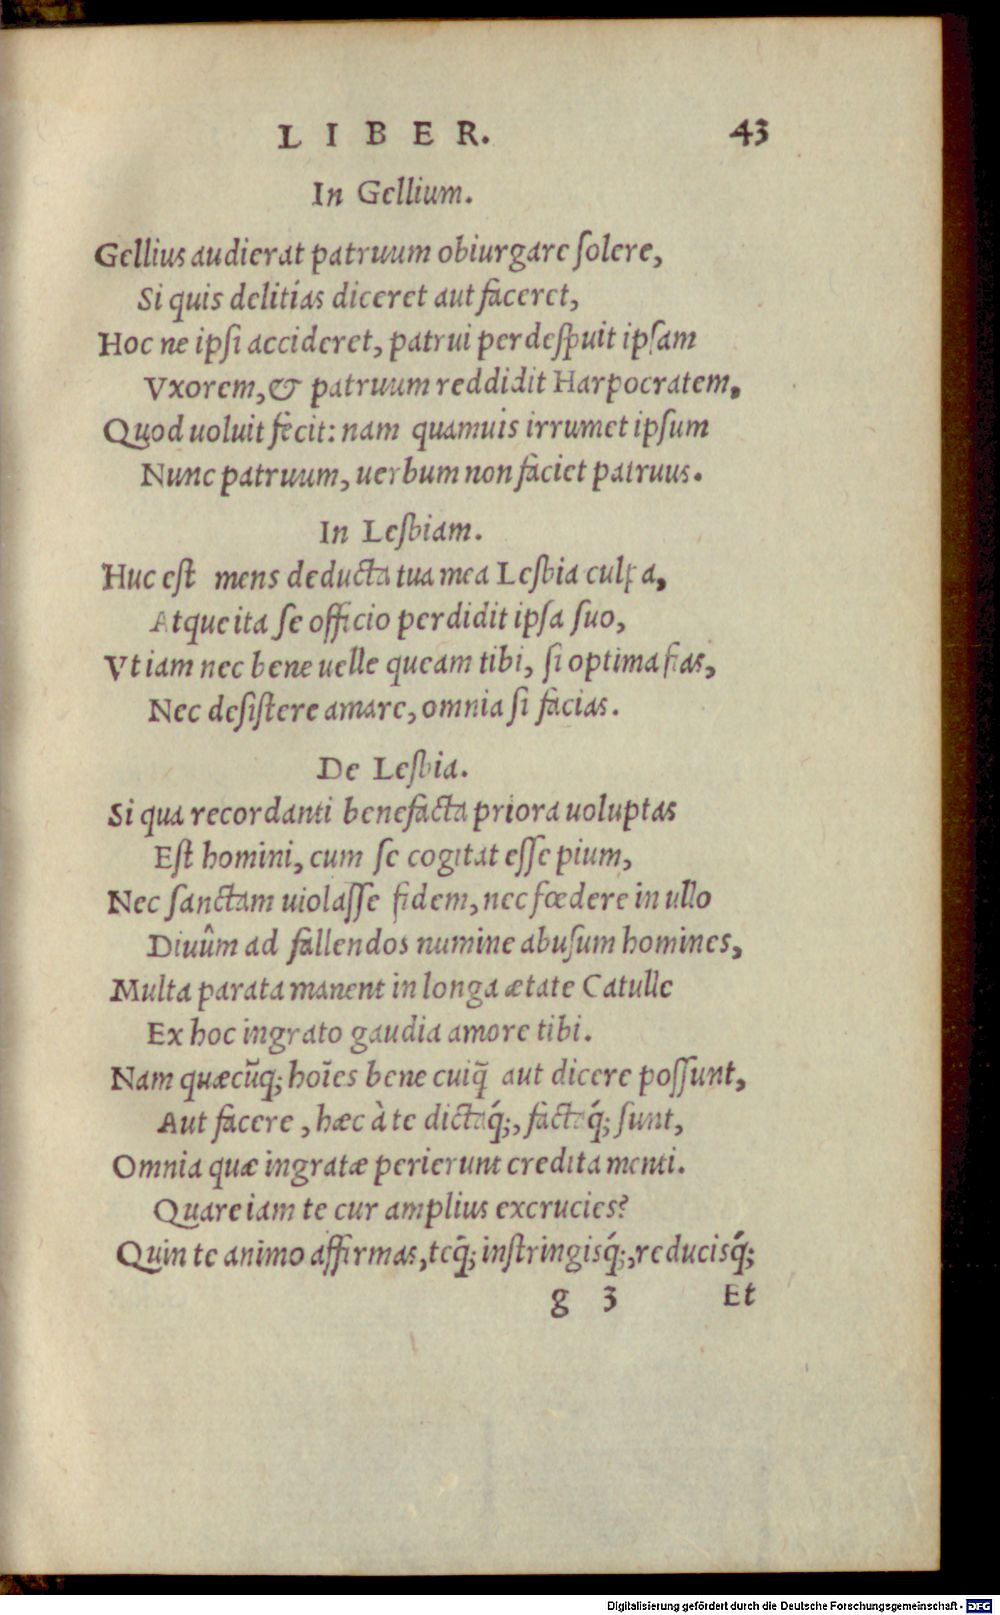 LIBER. 43
In Gellium.
Gellius audierat patruum obiurgare ſolere,
Si quis delitias diceret aut faceret,
Hoc ne ipſi accideret, patrui perdeſpuit ipſam
Vxorem, & patruum reddidit Harpocratem,
Quod uoluit fecit: nam quamuis irrumet ipſum
Nunc patruum, uerbum non faciet patruus.
In Leſbiam.
Huc eſt mens deducta tua mea Leſbia culpa,
Atque ita ſe officio perdidit ipſa ſuo,
Vt iam nec bene uelle queam tibi, ſi optima fias,
Nec deſiſtere amare, omnia ſi facias.
De Leſbia.
Si qua recordanti benefacta priora uoluptas
Eſt homini, cum ſe cogitat eſſe pium,
Nec ſanctam uiolaſſe fidem, nec fœdere in ullo
Diuûm ad fallendos numine abuſum homines,
Multa parata manent in longa ætate Catulle
Ex hoc ingrato gaudia amore tibi.
Nam quæcũq; hoĩes bene cuiq̃ aut dicere poſſunt,
Aut facere, hæc à te dictaq́;, factaq́; ſunt,
Omnia quæ ingratæ perierunt credita menti.
Quare iam te cur amplius excrucies?
Quin te animo affirmas, teq́; inſtringisq́;, reducisq́;
g 3 Et
Digitalisierung gefördert durch die Deutsche Forschungsgemeinschaft - DFG